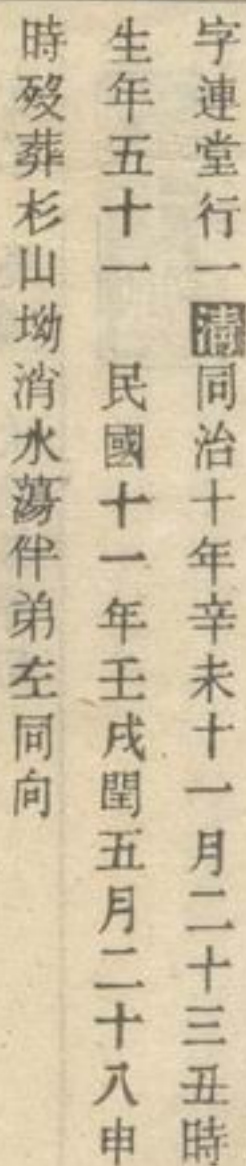 字連堂行一清同治十年辛未十一月二十三丑時
生年五十一　民國十一年壬戌閏五月二十八申
時殁葬杉山坳消水蕩伴弟左同向